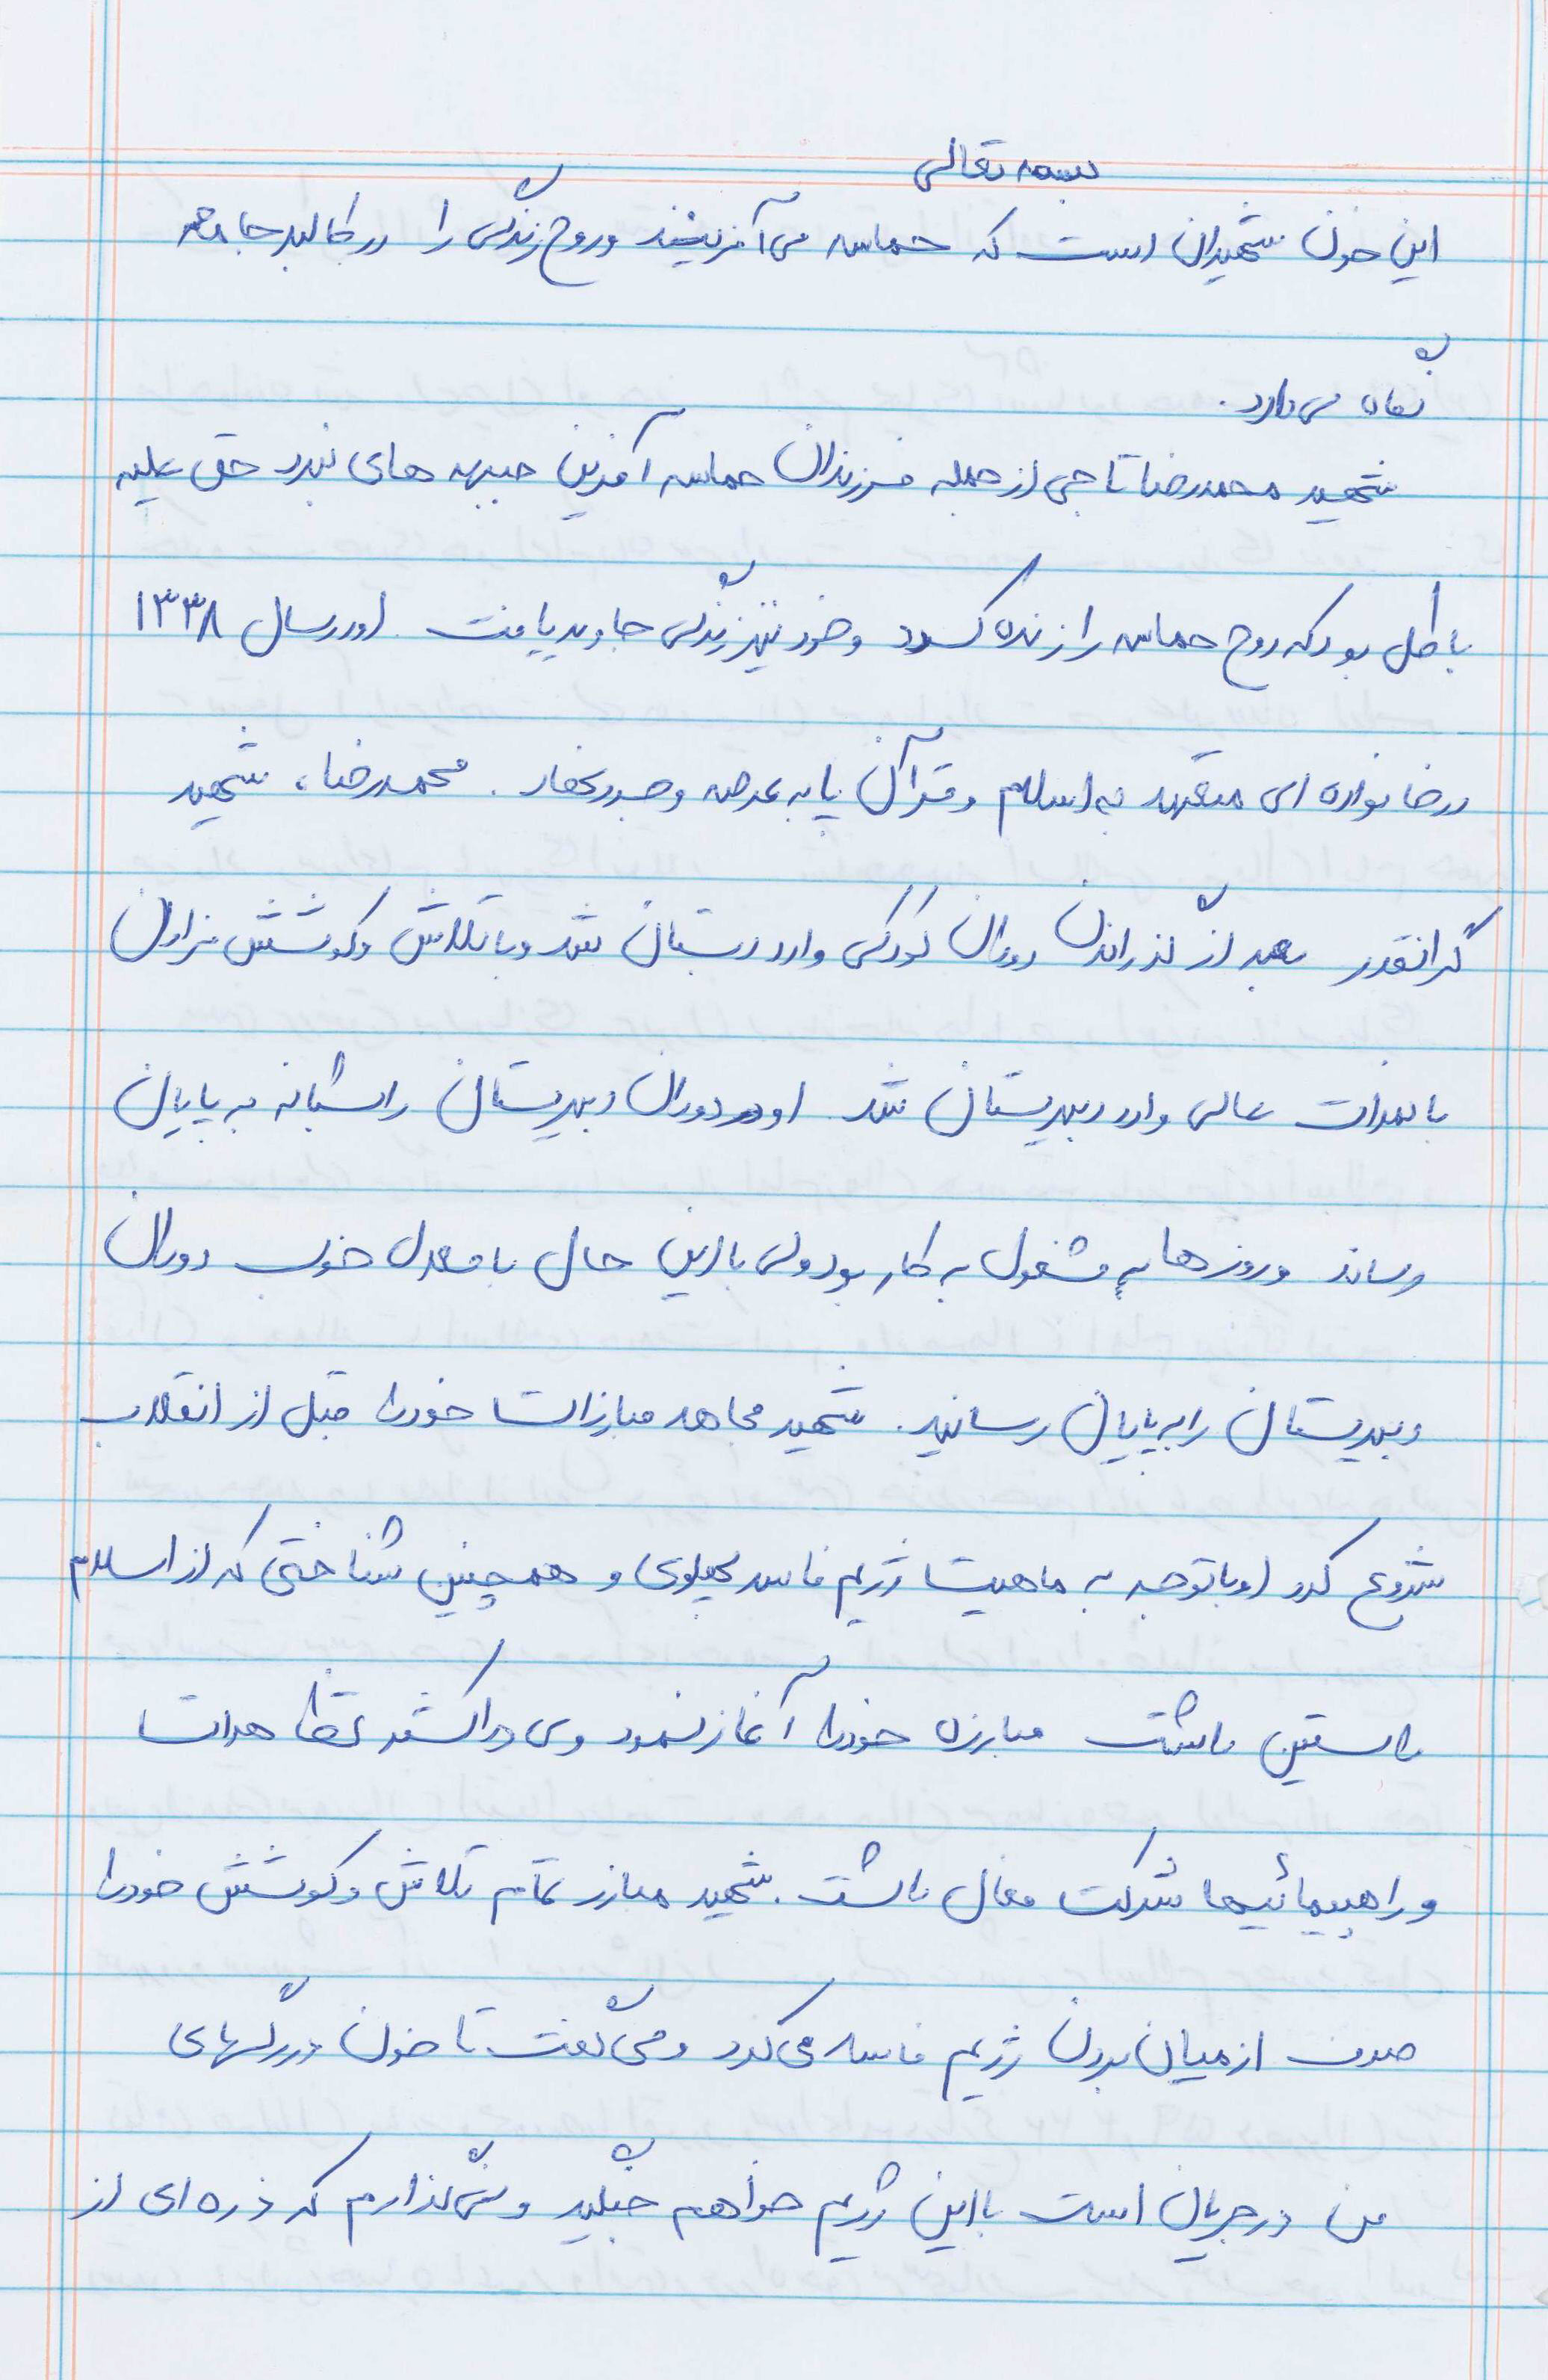 بسمه تعالی
این خون شهیدان است که حماسه می‌آفریند و روح زندگی را در کالبد جامعه
نگاه می‌دارد.
شهید محمدرضا تاجی از جمله فرزندان حماسه آفرین جبهه های نبرد حق علیه
باطل بود که روح حماسه را زنده کرد و خود نیز زندگی جاوید یافت. او در سال ۱۳۳۸
در خانواده ای متعهد به اسلام و قرآن پا به عرصه وجود نهاد. محمدرضا، شهید
گرانقدر بعد از گذراندن دوران کودکی وارد دبستان شد و با تلاش و کوشش فراوان
با نمرات عالی وارد دبیرستان شد. او دوران دبیرستان را شبانه به پایان
رساند و روزها به مشغول به کار بود ولی با این حال با معدل خوب دوران
دبیرستان را به پایان رسانید. شهید مجاهد مبارزات خود را قبل از انقلاب
شروع کرد او با توجه به ماهیت رژیم فاسد پهلوی و همچنین شناختی که از اسلام
راستین داشت مبارزه خود را آغاز نمود وی در اکثر تظاهرات
و راهپیمائیها شرکت فعال داشت. شهید مبارز تمام تلاش و کوشش خود را
صرف از میان بردن رژیم فاسد می‌کرد و می گفت تا خون در رگهای
من در جریان است با این رژیم خواهم جنگید و نمی گذارم که ذره ای از